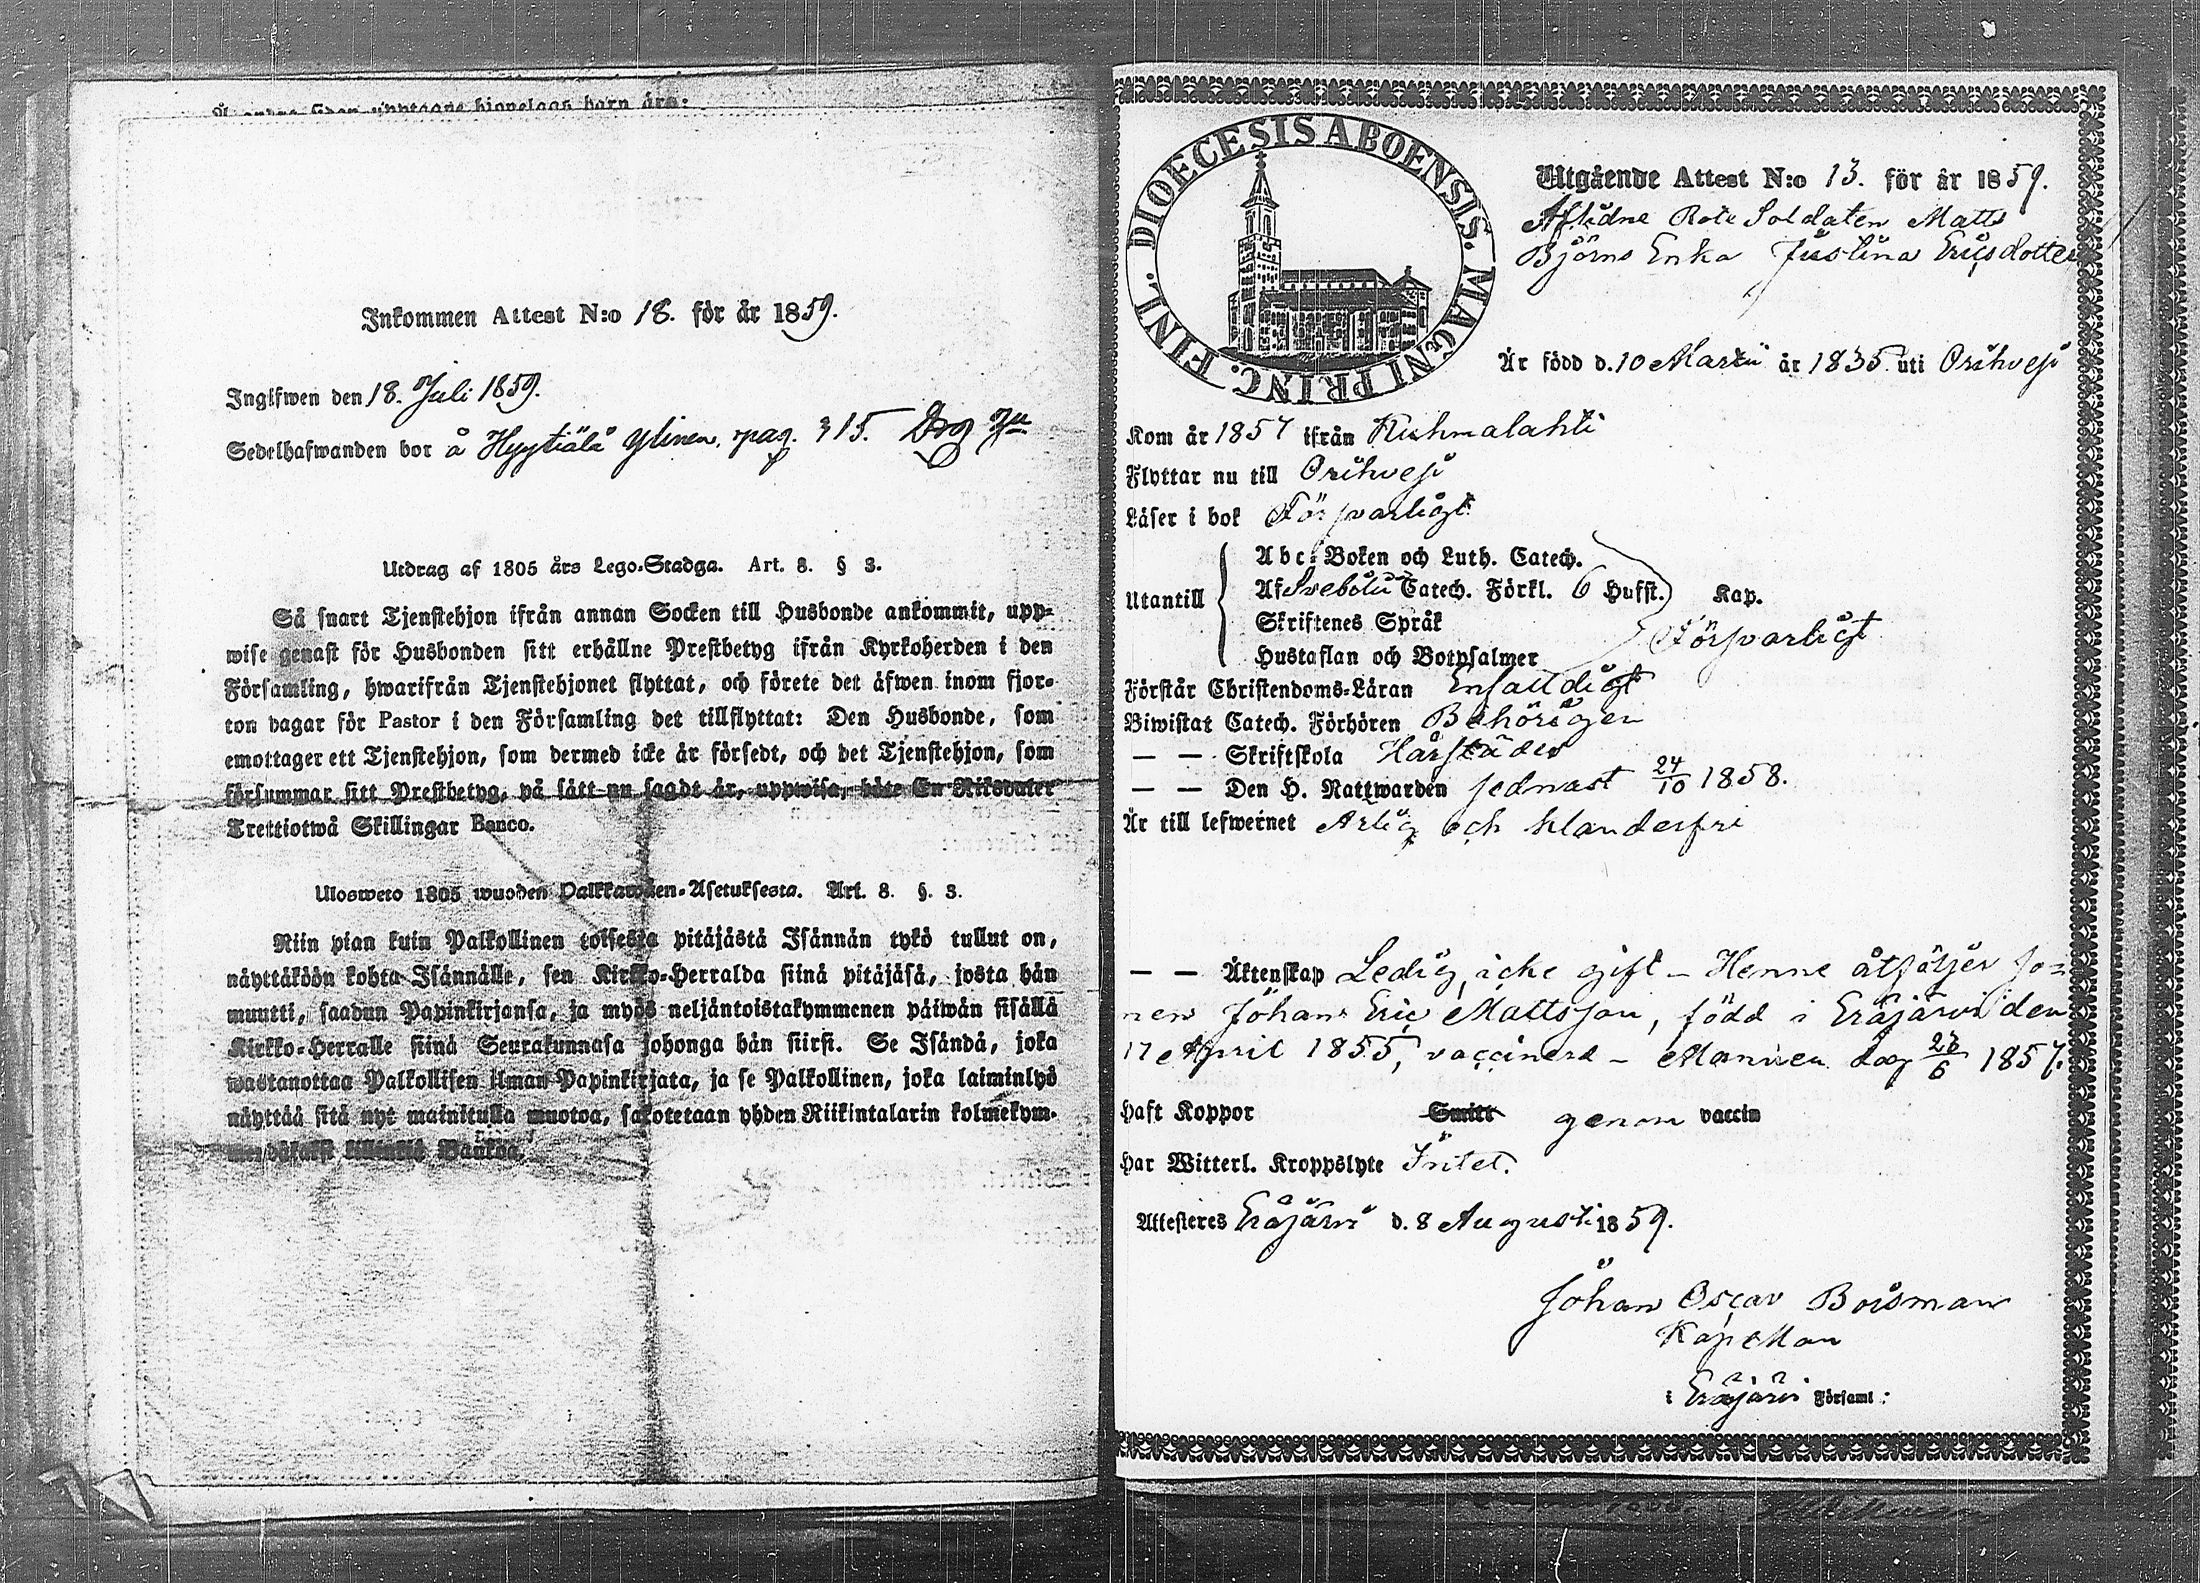 Inkommen Attest N:o 18. för år 1859.
Ingifwen den 18. Juli 1859.
Sedelhafwanden bor å Hyytiälä Ylinen, pag. 315.
Utdrag af 1805 års Lego-Stadga. Art. 8. § 3.
Så snart Tjenstehjon ifrån annan Socken till Husbonde ankommit, upp-
wise genast för Husbonden sitt erhållne Prestbetyg ifrån Kyrkoherden i den
Församling, hwarifrån Tjenstehjonet flyttat, och förete det äfwen inom fjor-
ton dagar för Pastor i den Församling det tillflyttat: Den Husbonde, som
emottager ett Tjenstehjon, som dermed icke är försedt, och det Tjenstehjon, som
försummar sitt Prestbetyg, på sätt nu sagdt är, uppwisa, böte En Riksdaler
Trettiotwå Skillingar Banco.
Ulosweto 1805 wuoden Palkkawäen-Asetuksesta. Art. 8. §. 3.
Niin pian kuin Palkollinen toisesta pitäjästä Isännän tykö tullut on,
näyttäköön kohta Isännälle, sen Kirkko-Herralda siinä pitäjäsä, josta hän
muutti, saadun Papinkirjansa, ja myös neljäntoistakymmenen päiwän sisällä
Kirkko-Herralle siinä Seurakunnasa johonga hän siirsi. Se Isändä, joka
wastanottaa Palkollisen ilman Papinkirjata, ja se Palkollinen, joka laiminlyö
näyttää sitä nyt mainitulla muotoa, sakotetaan yhden Riikintalarin kolmekym-
DIOECESIS ABOENSIS. MAGNI PRINC. FINL.
Utgående Attest N:o 13. för år 1859.
Aflidne Rote Soldaten Matts
Björns Enka Justina Ericsdotter
Är född d. 10 Martii år 1835 uti Orihvesi
Kom år 1857 ifrån Kuhmalahti
Flyttar nu till Orihvesi
Läser i bok Försvarligt
Utantill
Abc-Boken och Luth. Catech.
Af Svebilii Catech. Förkl. 6 Hufst. Kap.
Skriftenes Språk Försvarligt
Hustaflan och Botpsalmer
Förstår Christendoms-Läran Enfaldigt
Biwistat Catech. Förhören Behörigen
— — Skriftskola Härstädes
— — Den H. Nattwarden sednast 24/10 1858.
Är till lefwernet Ärlig och klanderfri
— — Äktenskap Ledig, icke gift – Henne åtföljer so-
nen Johan Eric Mattsson, född i Eräjärvi den
17 April 1855, vaccinerd – Mannen dog 1857.
Haft Koppor Smitt genom vaccin
Har Witterl. Kroppslyte Intet.
Attesteres Eräjärvi d. 8 Augusti 1859.
Johan Oscar Boisman
Kapellan
i Eräjärvi Församl: